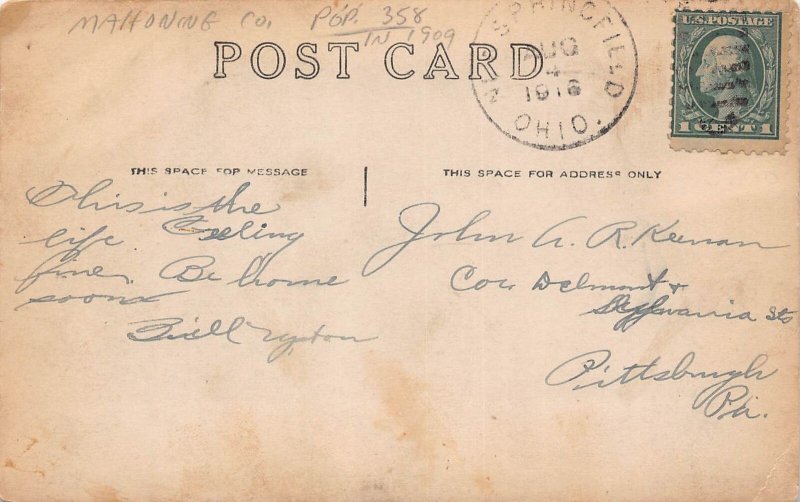 MAHONING CO. POP. 358
IN 1909
POST CARD
N. SPRINGFIELD
AUG
4
1916
OHIO.
U.S. POSTAGE
1 CENT 1
THIS SPACE FOR MESSAGE
THIS SPACE FOR ADDRESS ONLY
This is the
life Feeling
fine. Be home
soon
Bill
John A. R. Keenan
Cor. Delmont &
Sylvania Sts
Pittsburgh
Pa.